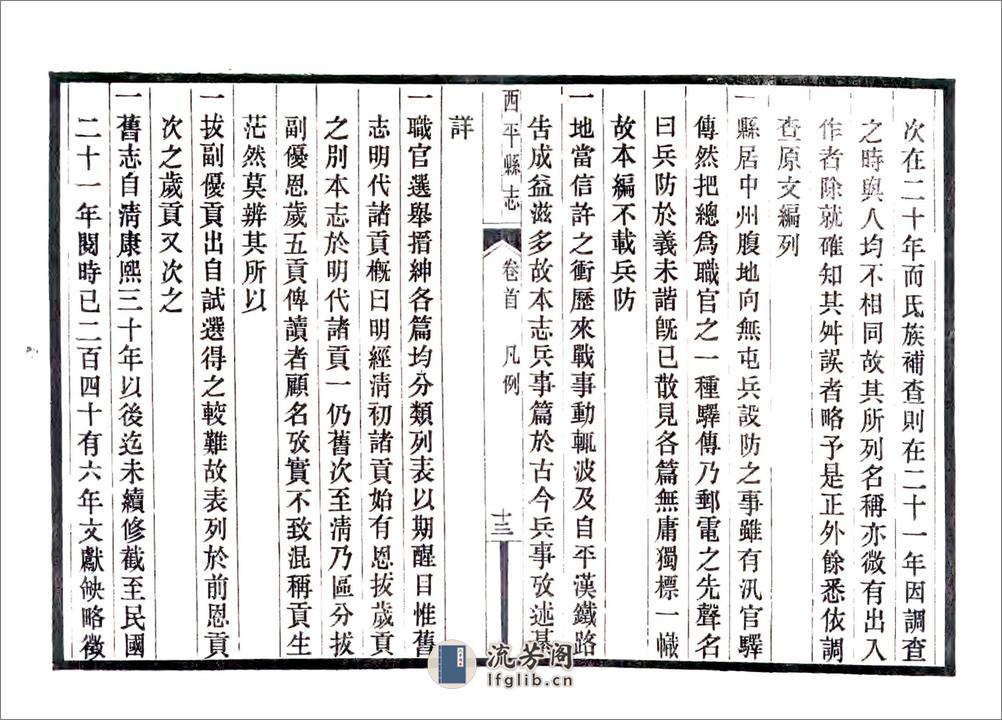 次在二十年而氏族補查則在二十一年因調查
之時與人均不相同故其所列名稱亦微有出入
作者除就確知其舛誤者略予是正外餘悉依調
查原文編列
一縣居中州腹地向無屯兵設防之事雖有汛官驛
傳然把總爲職官之一種驛傳乃郵電之先聲名
曰兵防於義未諧既已散見各篇無庸獨標一幟
故本編不載兵防
一地當信許之衝歷來戰事動輒波及自平漢鐵路
告成益滋多故本志兵事篇於古今兵事攷述甚
詳
西平縣志
卷首 凡例
十三
一職官選舉搢紳各篇均分類列表以期醒目惟舊
志明代諸貢概曰明經清初諸貢始有恩拔歲貢
之別本志於明代諸貢一仍舊次至清乃區分拔
副優恩歲五貢俾讀者顧名攷實不致混稱貢生
茫然莫辨其所以
一拔副優貢出自試選得之較難故表列於前恩貢
次之歲貢又次之
一舊志自清康熙三十年以後迄未續修截至民國
二十一年閱時已二百四十有六年文獻缺略徵
流芳阁
lfglib.cn